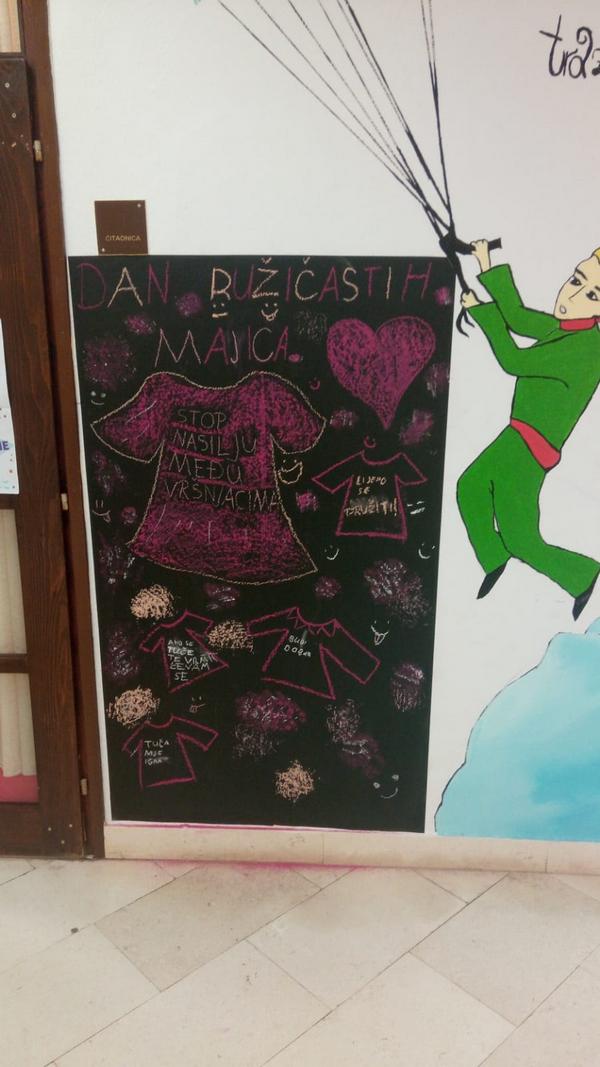 ČITAONICA
DAN RUŽIČASTIH
MAJICA
STOP
NASILJU
MEĐU
VRŠNJACIMA
LIJEPO
SE
DRUŽITI!
AKO SE
SE
BUDI
DOBAR
TUČA
NIJE
IGRA